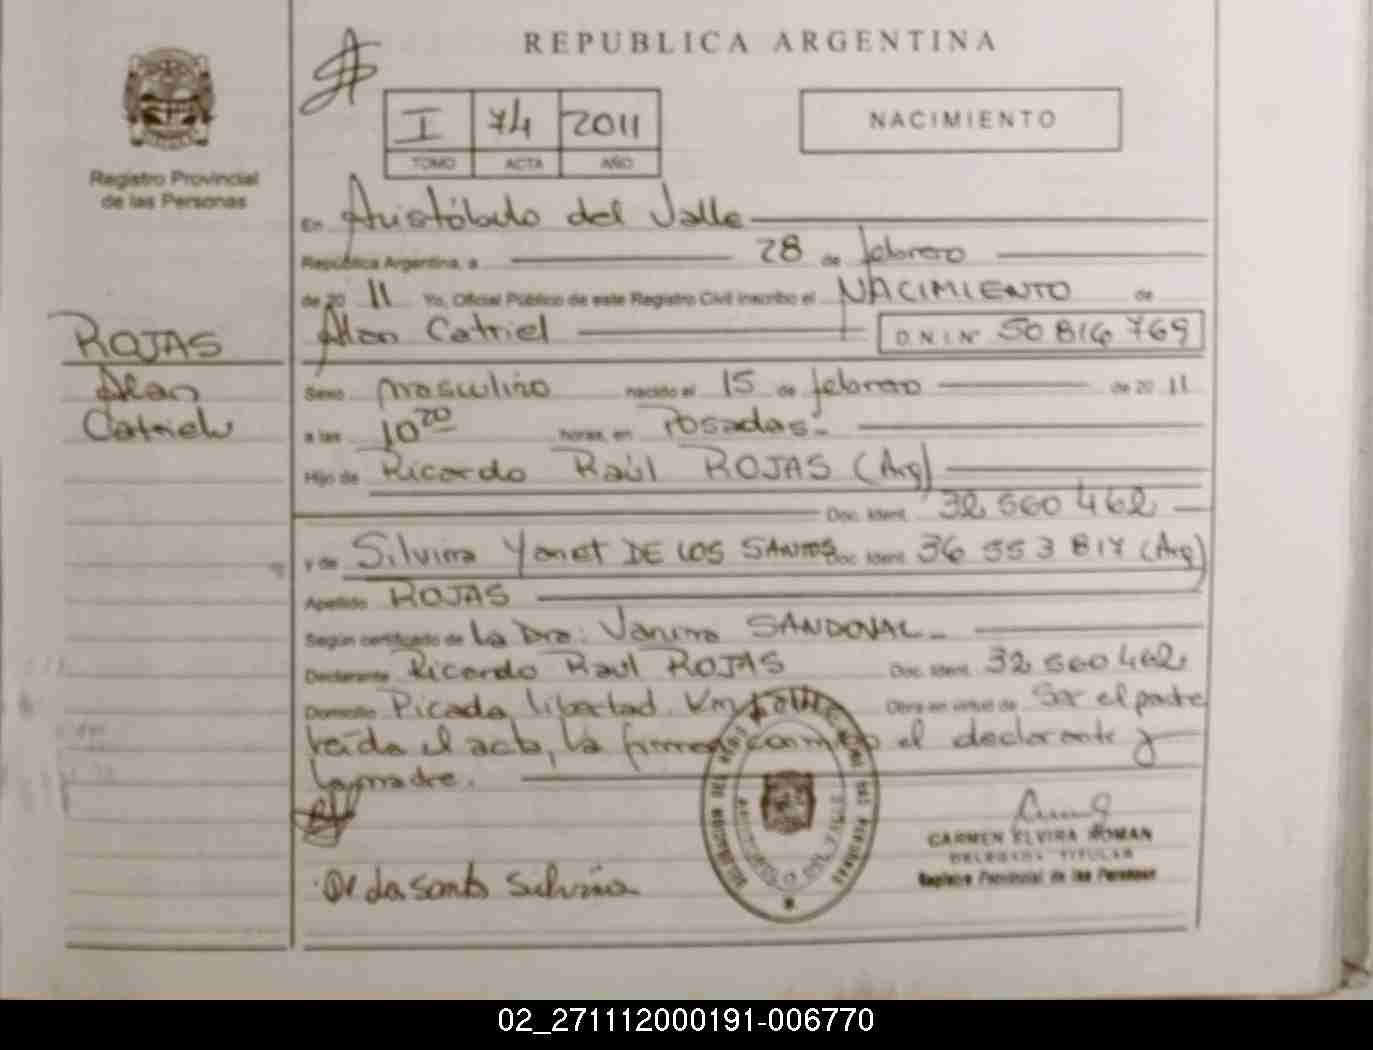 REPUBLICA ARGENTINA
I 74 2011
TOMO ACTA AÑO
NACIMIENTO
Registro Provincial
de las Personas
En Aristóbulo del Valle
República Argentina, a 28 de febrero
de 20 11 Yo, Oficial Público de este Registro Civil inscribo el NACIMIENTO de
Alan Catriel D.N.I. Nº 50 816 769
ROJAS
Alan
Catriel
Sexo masculino nacido el 15 de febrero de 20 11
a las 10 20 horas, en Posadas.-
Hijo de Ricardo Raúl ROJAS (Arg)
Doc. Ident. 32 560 462
y de Silvina Yanet DE LOS SANTOS Doc. Ident. 36 553 817 (Arg)
Apellido ROJAS
Según certificado de la Dra: Vanina SANDOVAL -
Declarante Ricardo Raul ROJAS Doc. Ident. 32 560 462
Domicilio Picada libertad Km Obra en virtud de Ser el padre
leída el acta, la firma conmigo el declarante y
la madre.
De los santos Silvina
ARISTOBULO DEL VALLE
CARMEN ELVIRA ROMAN
DELEGADA TITULAR
Registro Provincial de las Personas
02_271112000191-006770